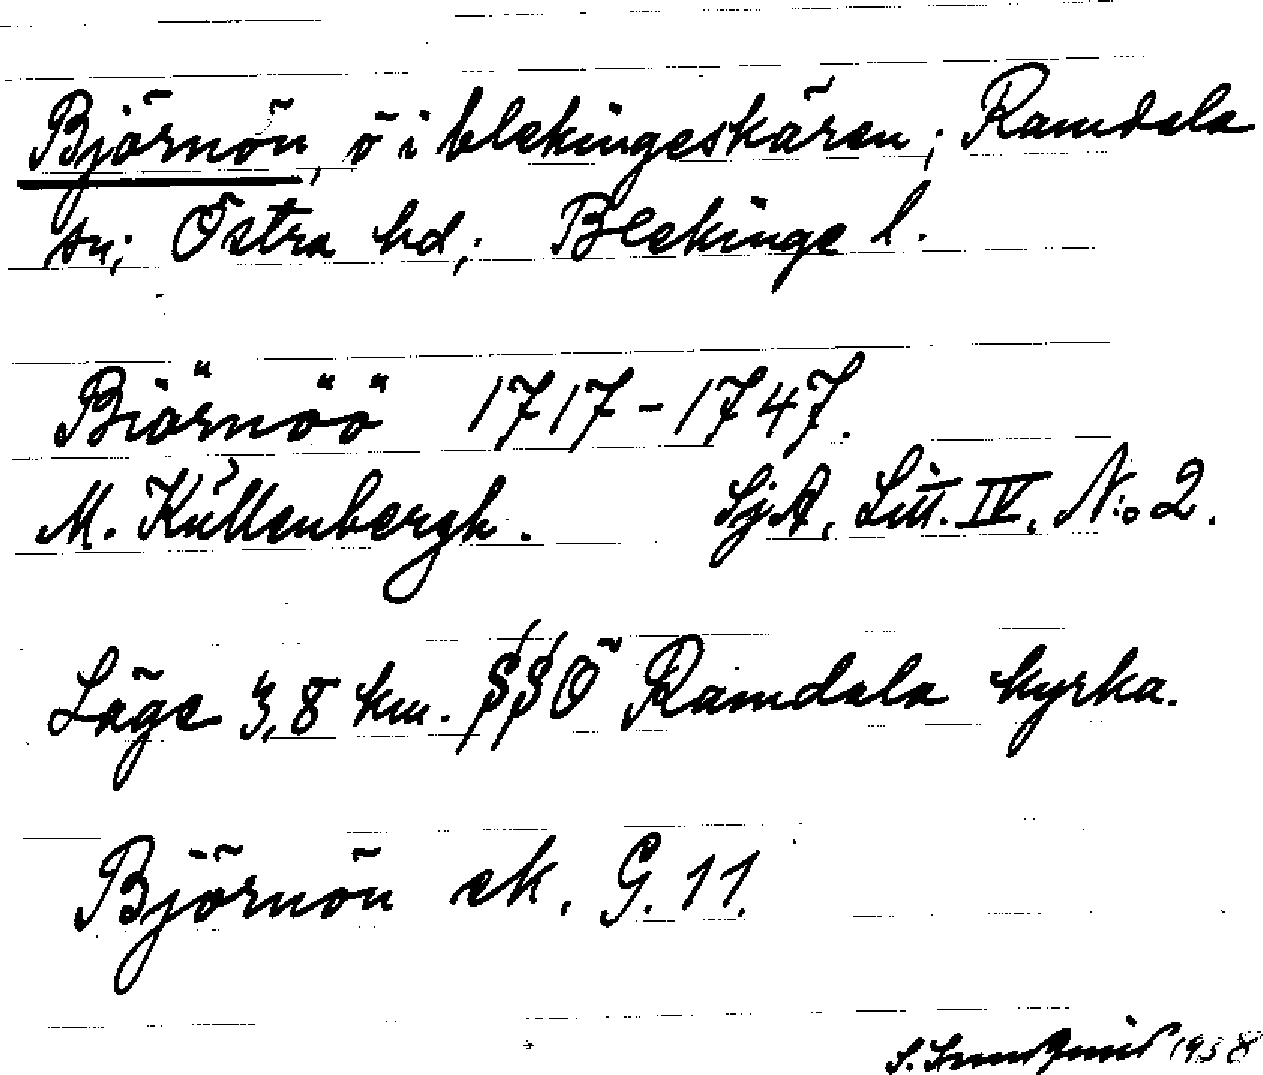 Björnön, ö i blekingeskären; Ramdala
sn; Östra hd; Blekinge l.
Biörnöö 1717-1747.
M. Küllenbergh. SjA, Litt. IV, N:o 2.
Läge 3,8 km. SSÖ Ramdala kyrka.
Björnön ek. G. 11.
1958